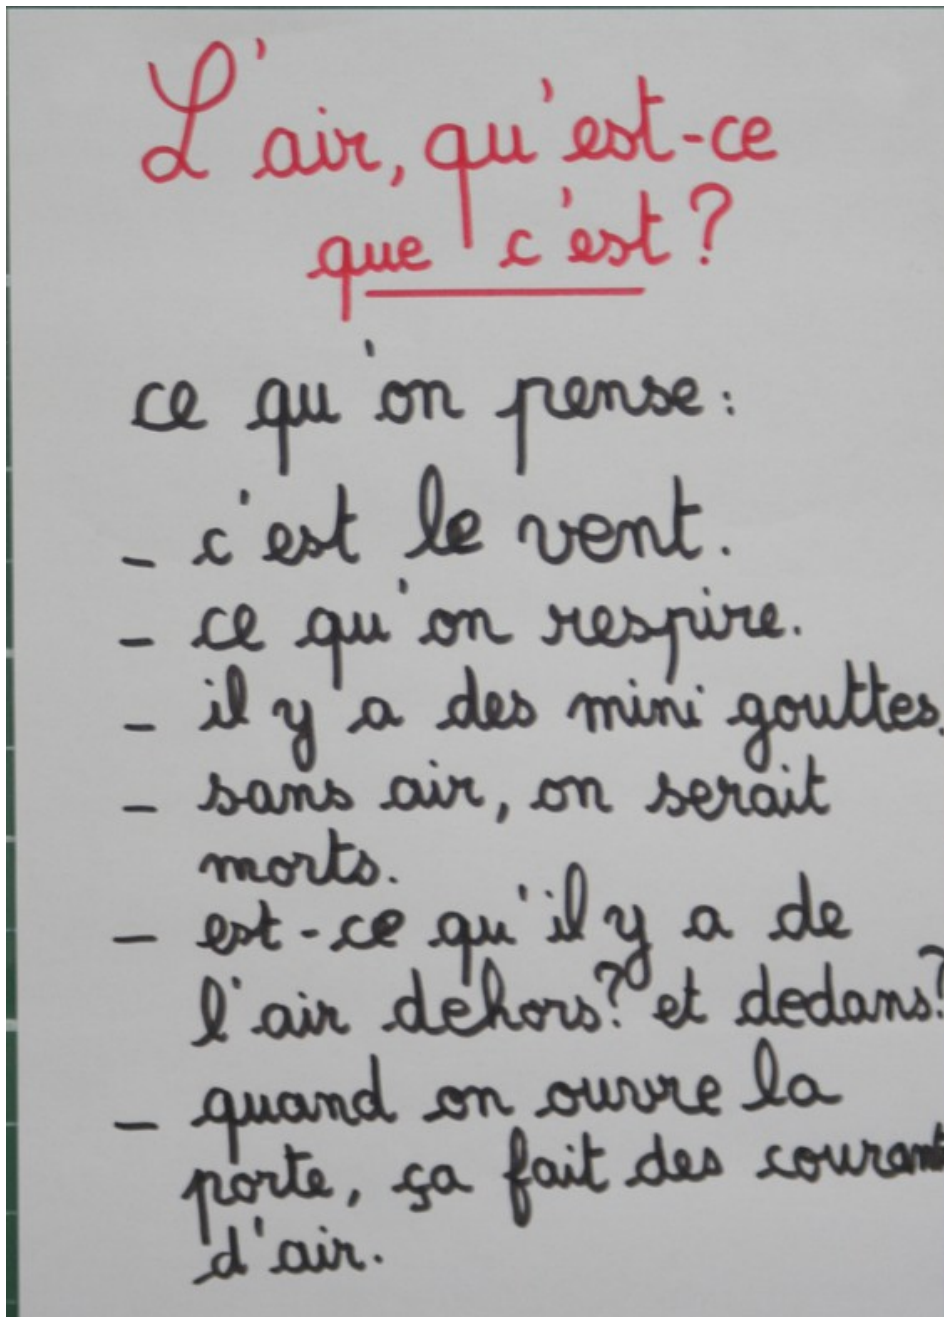 L'air, qu'est-ce
que c'est?
ce qu'on pense:
- c'est le vent.
- ce qu'on respire.
- il y a des mini gouttes.
- sans air, on serait
morts.
- est-ce qu'il y a de
l'air dehors? et dedans?
- quand on ouvre la
porte, ça fait des courant
d'air.